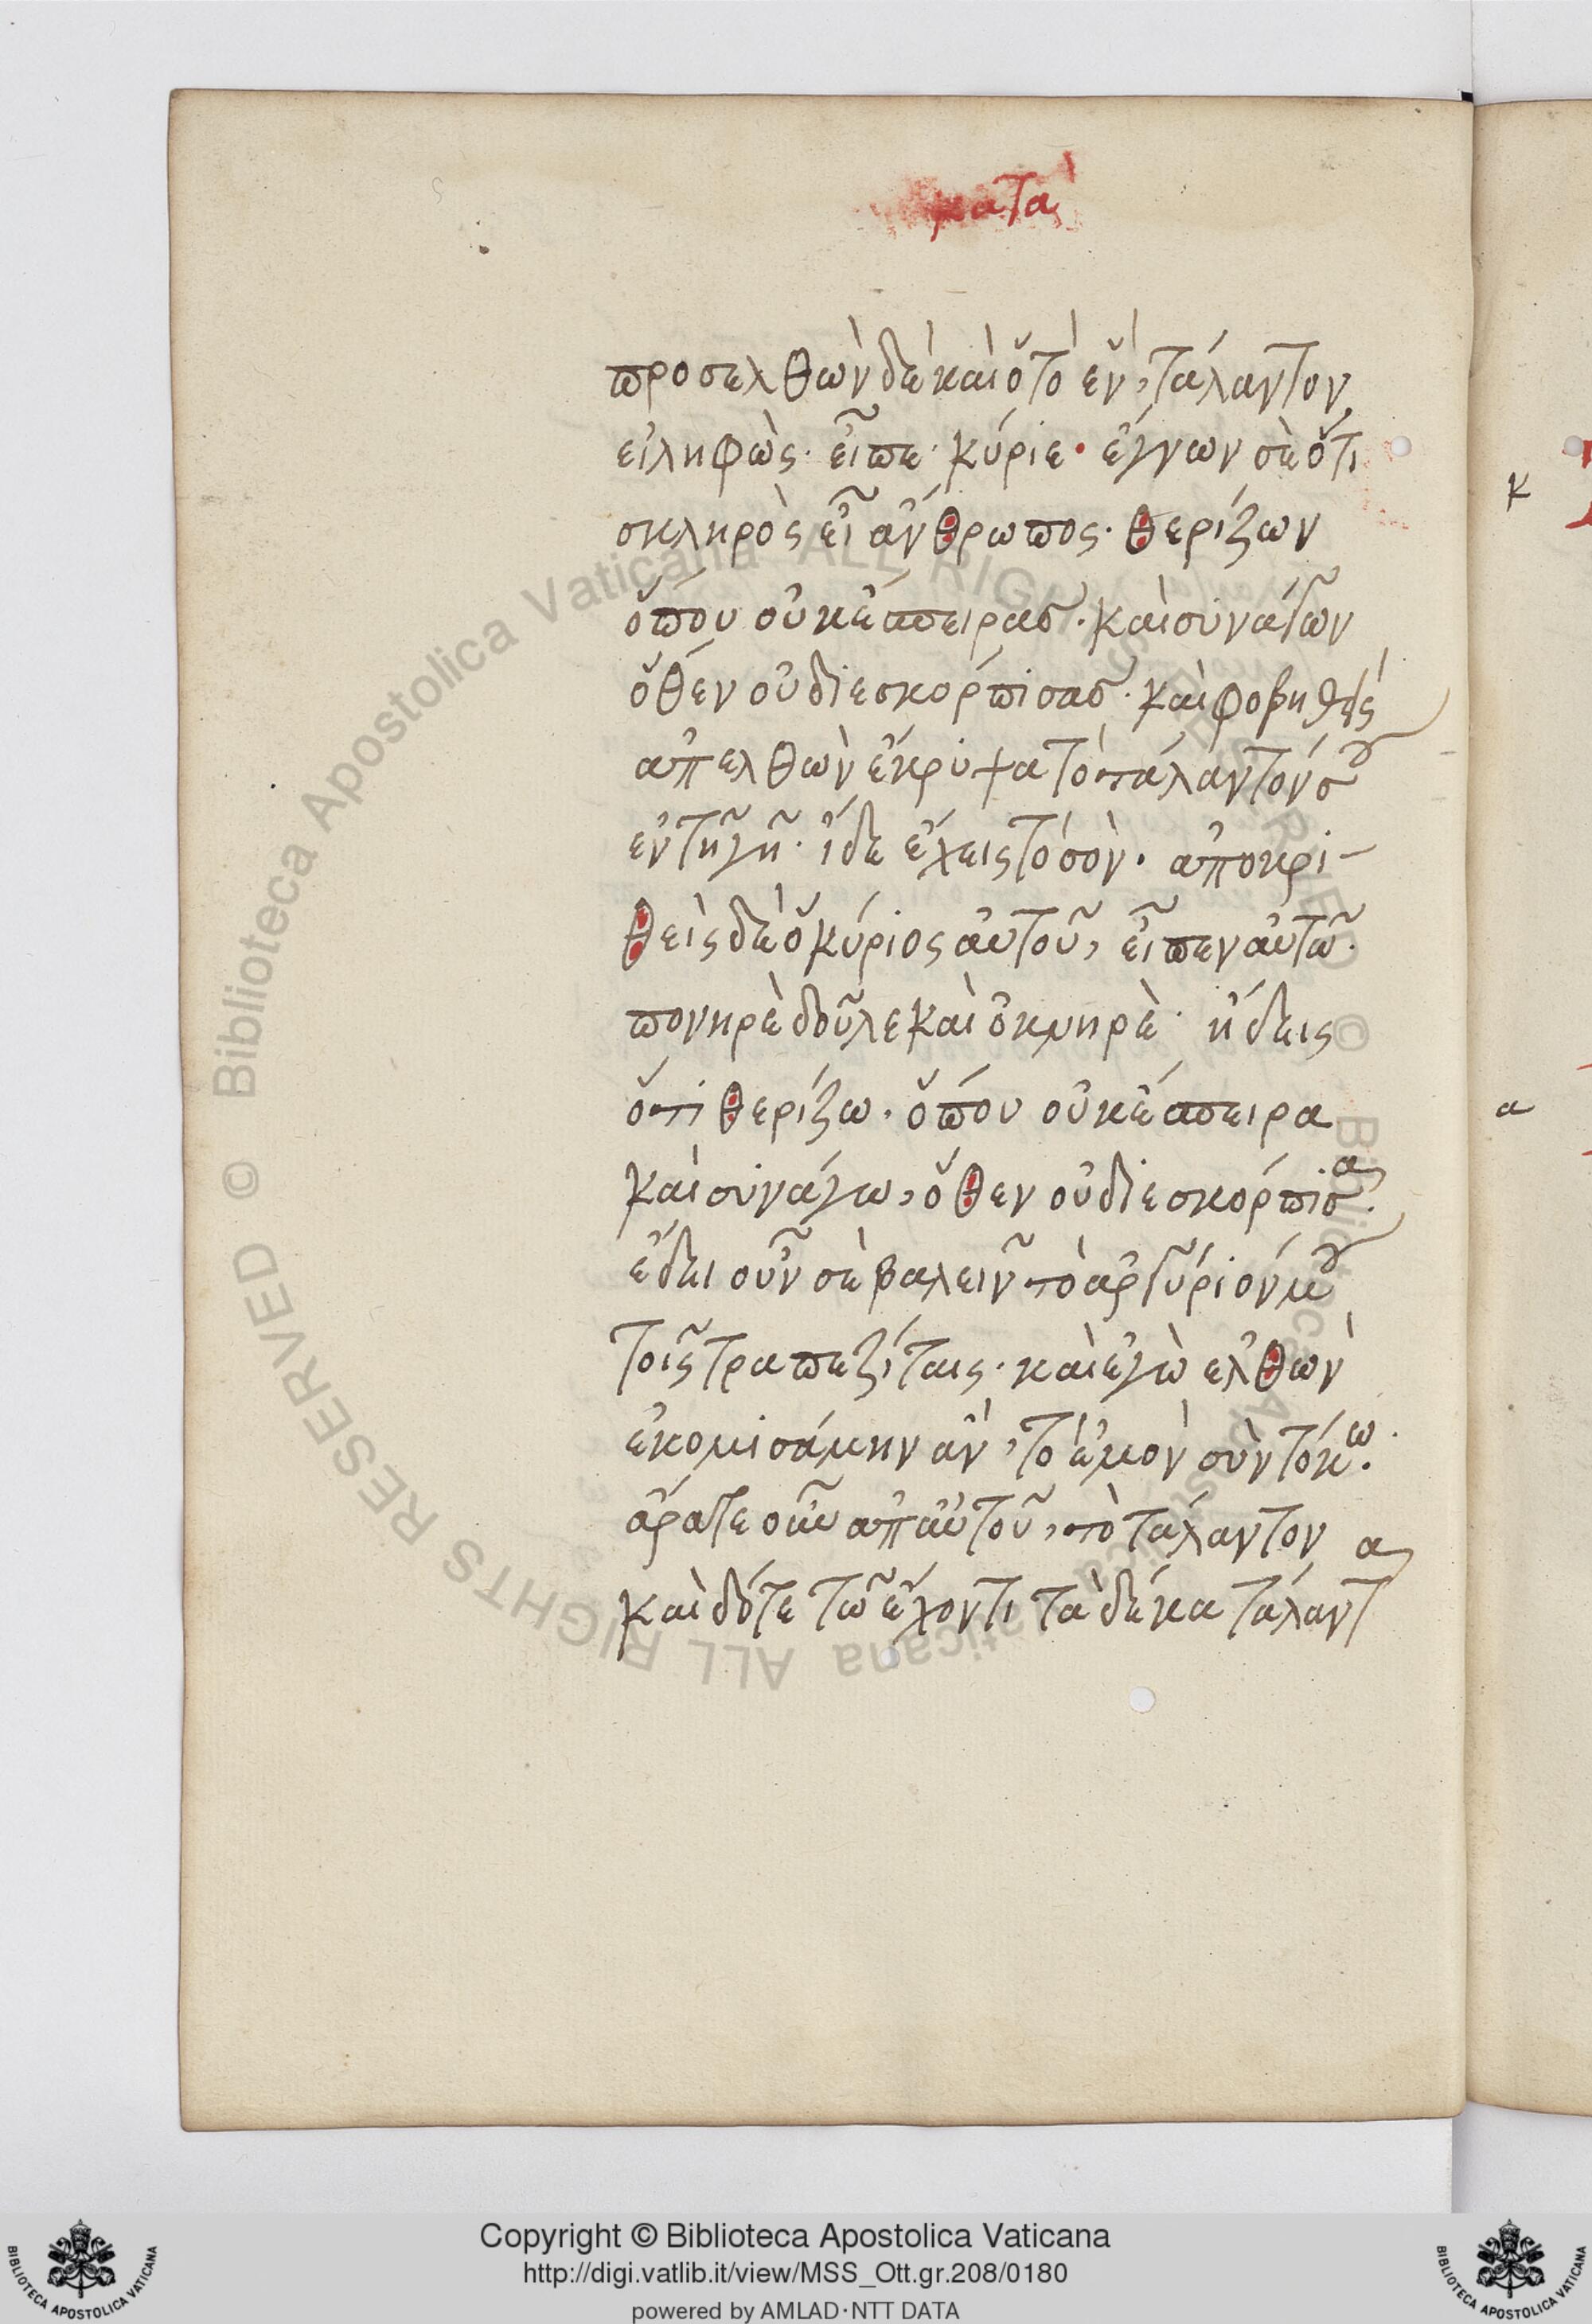 κατὰ
προσελθὼν δὲ καὶ ὁ τὸ ἓν, τάλαντον
εἰληφὼς· εἶπε· κύριε· ἔγνων σὲ ὅτι
σκληρὸς εἶ ἄνθρωπος· θερίζων
ὅπου οὐκ ἔσπειρας· καὶ συνάγων
ὅθεν οὐ διεσκόρπισας· καὶ φοβηθεὶς
ἀπελθὼν ἔκρυψα τὸ τάλαντόν σου
ἐν τῆ γῆ· ἴδε ἔχεις τὸ σὸν· ἀποκρι-
θεὶς δὲ ὁ κύριος αὐτοῦ, εἶπεν αὐτῶ·
πονηρὲ δοῦλε καὶ ὀκνηρὲ· ἤδεις
ὅτι θερίζω· ὅπου οὐκ ἔσπειρα
καὶ συνάγω, ὅθεν οὐ διεσκόρπισα·
ἔδει οὖν σὲ βαλεῖν τὸ ἀργύριόν μου
τοῖς τραπεζίταις· καὶ ἐγὼ ἐλθὼν
ἐκομισάμην ἂν, τὸ ἐμὸν σὺν τόκω·
ἄρατε οὖν ἀπ αὐτοῦ, τὸ τάλαντον
καὶ δότε τῶ ἔχοντι τὰ δέκα τάλαντα
κ
α
Biblioteca Apostolica Vaticana ALL RIGHTS RESERVED © Biblioteca Apostolica Vaticana ALL RIGHTS RESERVED ©
Copyright © Biblioteca Apostolica Vaticana
http://digi.vatlib.it/view/MSS_Ott.gr.208/0180
powered by AMLAD·NTT DATA
BIBLIOTECA APOSTOLICA VATICANA
BIBLIOTECA APOSTOLICA VATICANA